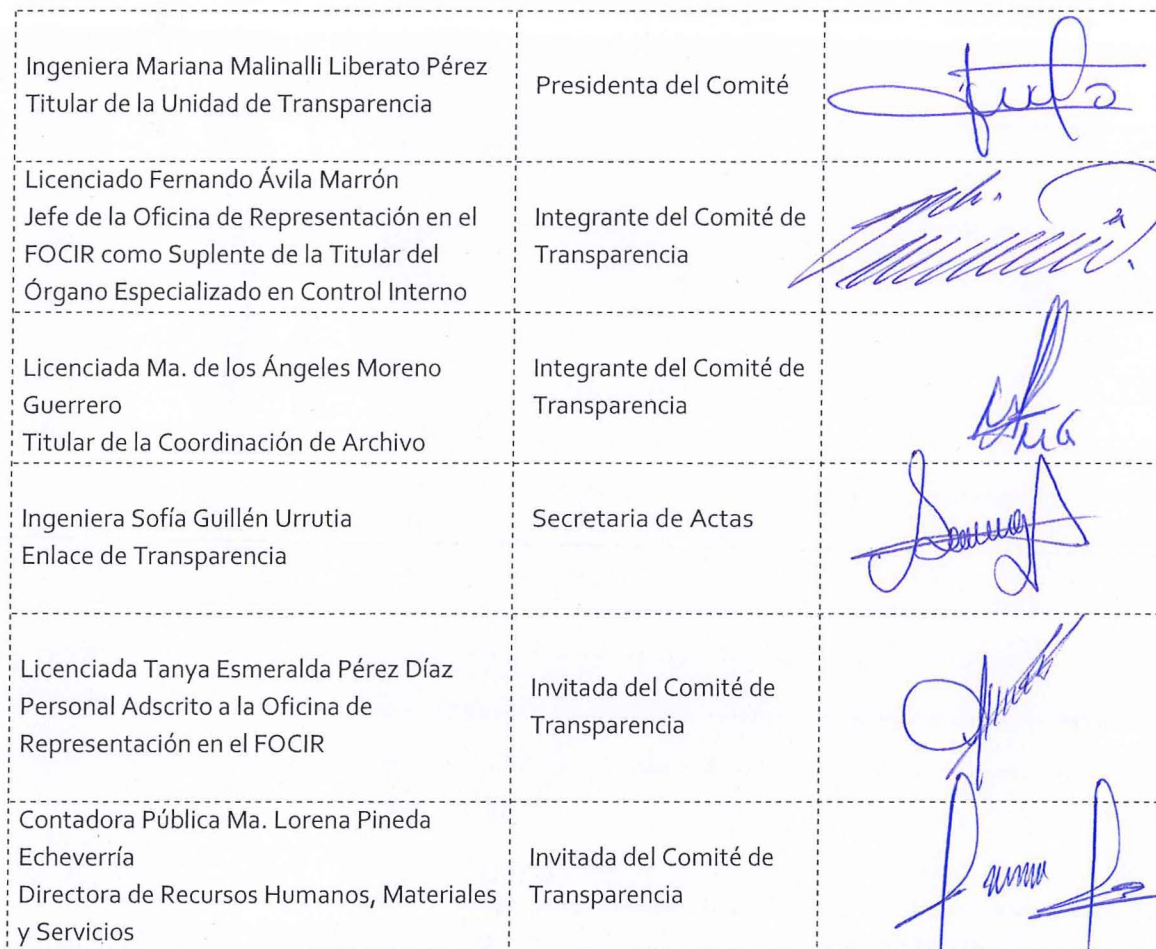 Ingeniera Mariana Malinalli Liberato Pérez
Titular de la Unidad de Transparencia
Presidenta del Comité
Licenciado Fernando Ávila Marrón
Jefe de la Oficina de Representación en el
FOCIR como Suplente de la Titular del
Órgano Especializado en Control Interno
Integrante del Comité de
Transparencia
Licenciada Ma. de los Ángeles Moreno
Guerrero
Titular de la Coordinación de Archivo
Integrante del Comité de
Transparencia
Ingeniera Sofía Guillén Urrutia
Enlace de Transparencia
Secretaria de Actas
Licenciada Tanya Esmeralda Pérez Díaz
Personal Adscrito a la Oficina de
Representación en el FOCIR
Invitada del Comité de
Transparencia
Contadora Pública Ma. Lorena Pineda
Echeverría
Directora de Recursos Humanos, Materiales
y Servicios
Invitada del Comité de
Transparencia